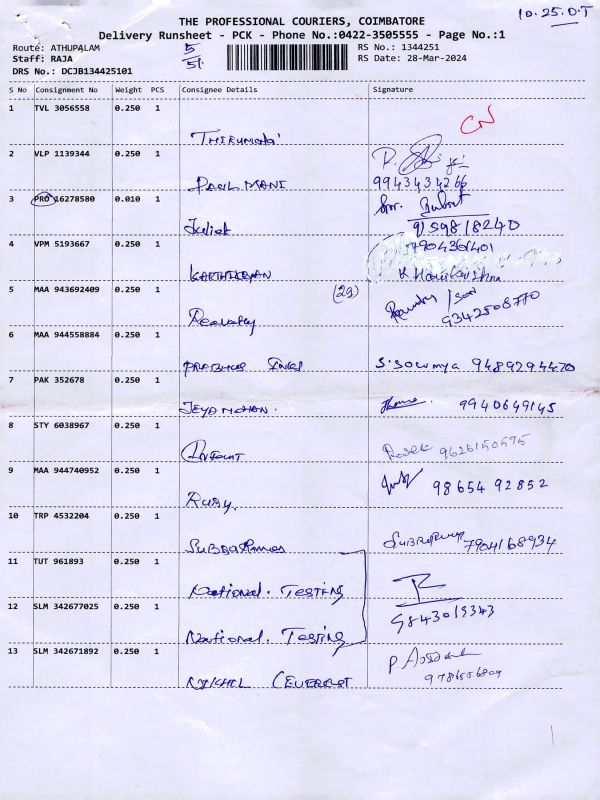 10.25.D.T
THE PROFESSIONAL COURIERS, COIMBATORE
Delivery Runsheet - PCK - Phone No.:0422-3505555 - Page No.:1
Route: ATHUPALAM 5 RS No.: 1344251
Staff: RAJA 51 RS Date: 28-Mar-2024
DRS No.: DCJB134425101
S No Consignment No Weight PCS Consignee Details Signature
1 TVL 3056558 0.250 1
CN
2 VLP 1139344 0.250 1
PAUL MANI 9943434266
3 PRO 16278580 0.010 1
Juliet 9159818240
4 VPM 5193667 0.250 1 7904361401
KARTHIKEYAN
5 MAA 943692409 0.250 1 (29)
9342508770
6 MAA 944558884 0.250 1
S.Sowmya 9489294470
7 PAK 352678 0.250 1
JEYA MOHAN. 9940649145
8 STY 6038967 0.250 1
9626150595
9 MAA 944740952 0.250 1
Ruby. 98654 92852
10 TRP 4532204 0.250 1
7904168934
11 TUT 961893 0.250 1
National. Testing
12 SLM 342677025 0.250 1
9843019343
National. Testing
13 SLM 342671892 0.250 1
NIKHIL